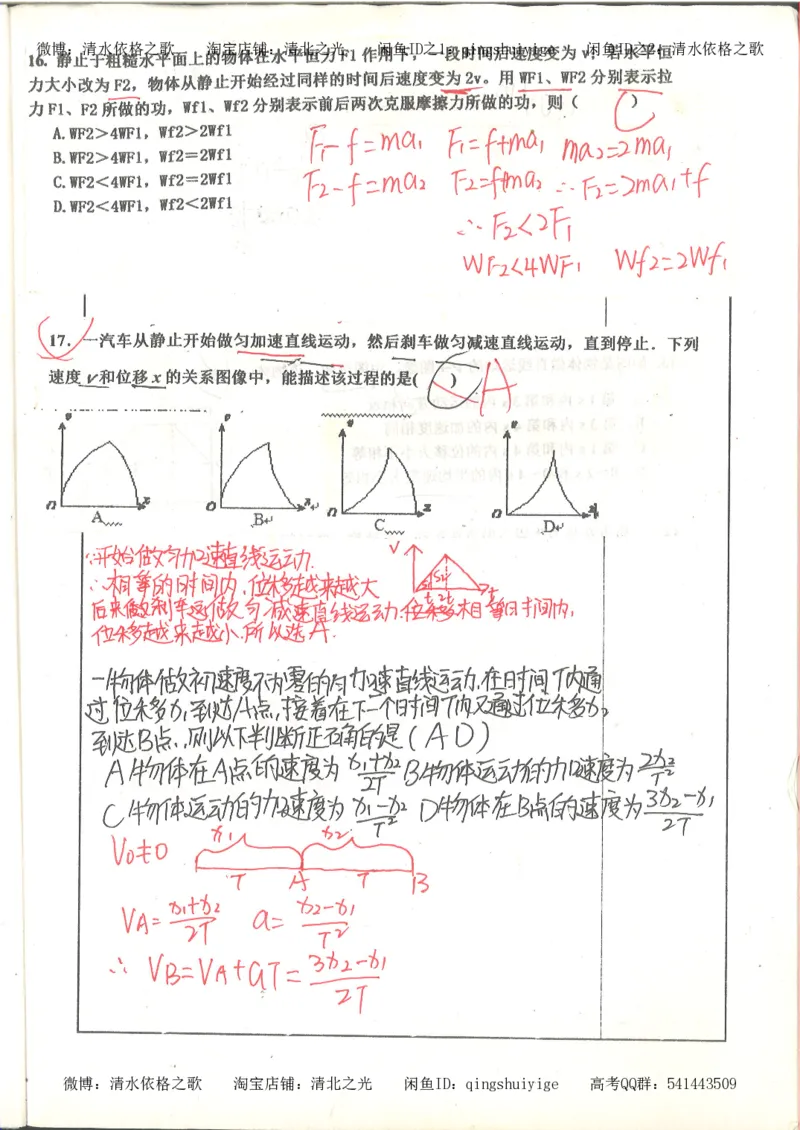 微博：清水依格之歌 淘宝店铺：清北之光 闲鱼ID之1：qingshuiyige 闲鱼ID之2：清水依格之歌
16. 静止于粗糙水平面上的物体在水平恒力F1作用下，一段时间后速度变为v，若水平恒
力大小改为F2，物体从静止开始经过同样的时间后速度变为2v。用WF1、WF2分别表示拉
力F1、F2所做的功，Wf1、Wf2分别表示前后两次克服摩擦力所做的功，则（ C ）
A.WF2>4WF1，Wf2>2Wf1
B.WF2>4WF1，Wf2=2Wf1
C.WF2<4WF1，Wf2=2Wf1
D.WF2<4WF1，Wf2<2Wf1
F1-f=ma1 F1=f+ma1 ma2=2ma1
F2-f=ma2 F2=f+ma2 ∴F2=2ma1+f
∴F2<2F1
WF2<4WF1 Wf2=2Wf1
17. 一汽车从静止开始做匀加速直线运动，然后刹车做匀减速直线运动，直到停止．下列
速度v和位移x的关系图像中，能描述该过程的是( ) A
v v v v
O x O x O x O x
A B C D
∵开始做匀加速直线运动.
∴相等的时间内，位移越来越大
后来做刹车运做匀减速直线运动.位移相等时间内，
位移越来越小.所以选A.
v
t 2t t
一物体做初速度不为零的匀加速直线运动，在时间T内通
过位移x1，到达A点，接着在下一个时间T内又通过位移x2
到达B点，则以下判断正确的是(AD)
A物体在A点的速度为x1+x2/2T B物体运动的加速度为2x2/T²
C物体运动的加速度为x1-x2/T² D物体在B点的速度为3x2-x1/2T
V0≠0 x1 x2
T A T B
VA=x1+x2/2T a=x2-x1/T²
∴VB=VA+aT=3x2-x1/2T
微博：清水依格之歌 淘宝店铺：清北之光 闲鱼ID：qingshuiyige 高考QQ群：541443509